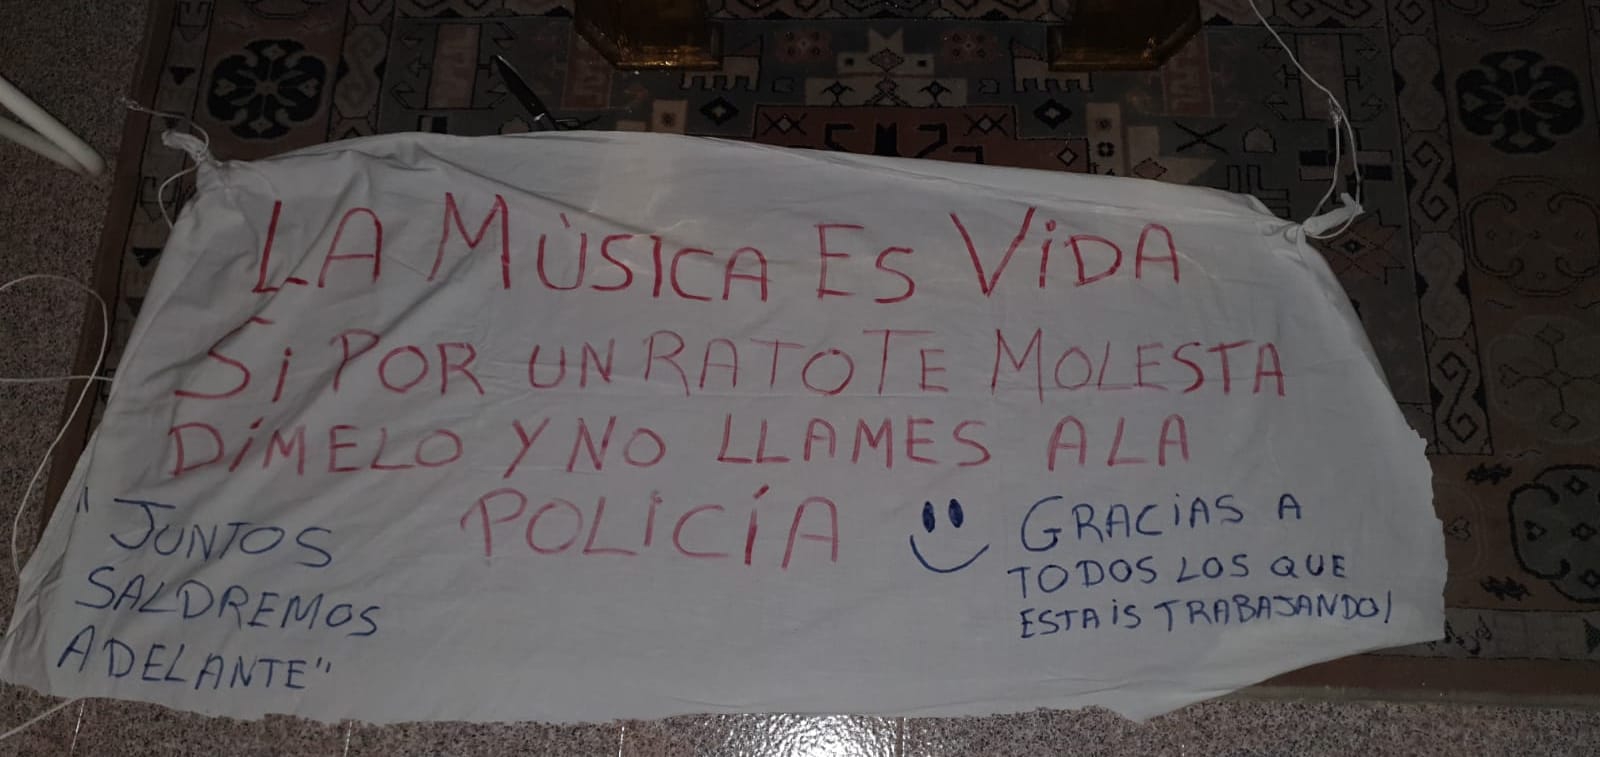 LA MÙSICA ES VIDA
SI POR UN RATO TE MOLESTA
DÍMELO Y NO LLAMES A LA
POLICÍA
"JUNTOS
SALDREMOS
ADELANTE"
GRACIAS A
TODOS LOS QUE
ESTAIS TRABAJANDO!